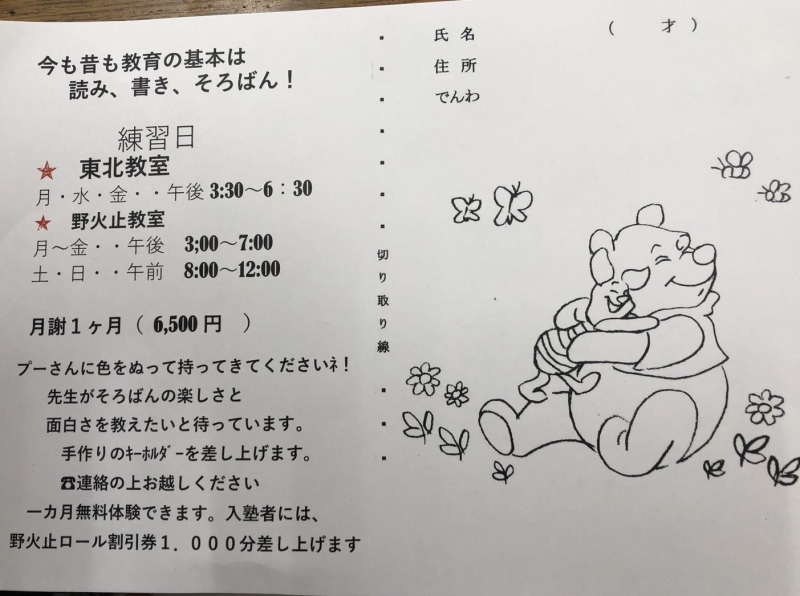 今も昔も教育の基本は
読み、書き、そろばん！
練習日
★ 東北教室
月・水・金・・午後 3:30～6：30
★ 野火止教室
月～金・・午後 3;00～7:00
土・日・・午前 8:00～12:00
月謝１ヶ月（ 6,500 円 ）
プーさんに色をぬって持ってきてくださいﾈ！
先生がそろばんの楽しさと
面白さを教えたいと待っています。
手作りのｷｰﾎﾙﾀﾞｰを差し上げます。
☎連絡の上お越しください
一カ月無料体験できます。入塾者には、
野火止ロール割引券１．０００分差し上げます
切り取り線
氏 名 （ 才 ）
住 所
でんわ